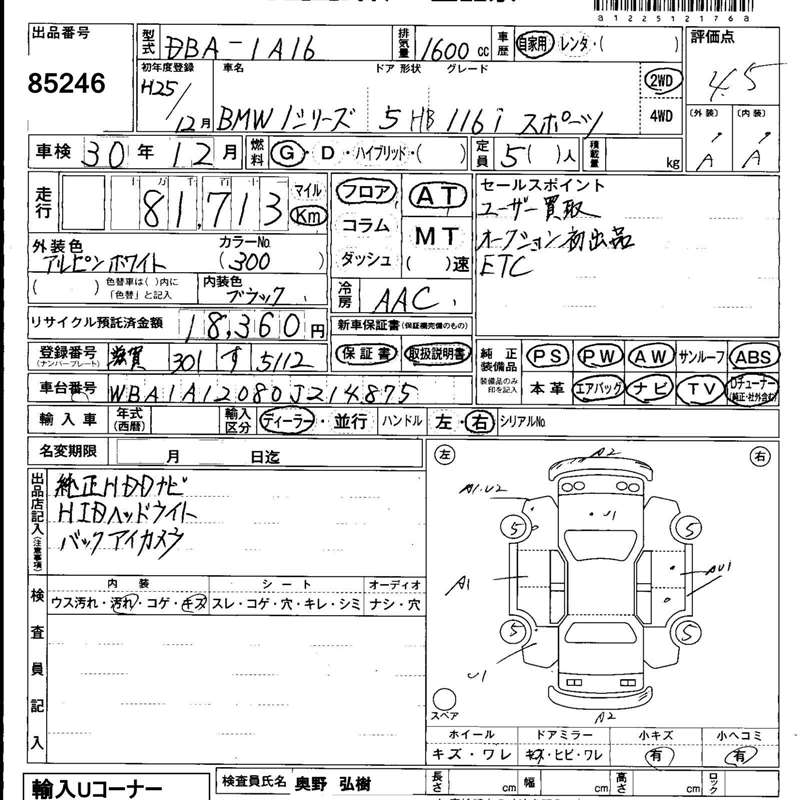 8 1 2 2 5 1 2 1 7 6 8
出品番号
85246
型式 DBA-1A16
排気量 1600 cc
車歴 自家用・レンタ・( )
評価点 4.5
初年度登録 H25/12月
車名 BMW 1シリーズ
ドア 形状 5 HB
グレード 116i スポーツ
2WD
4WD
(外装) A
(内装) A
車検 30年 12月
燃料 G・D・ハイブリッド・( )
定員 5( )人
積載量 kg
走行 十 万 千 百 十
81,713
マイル
Km
フロア
コラム
ダッシュ
AT
MT
( )速
セールスポイント
ユーザー買取
オークション初出品
ETC
外装色 アルピンホワイト
カラーNo. (300)
( ) 色替車は( )内に「色替」と記入
内装色 ブラック
冷房 AAC
リサイクル預託済金額 18,360円
新車保証書(保証継完備のもの)
保証書 取扱説明書
登録番号 (ナンバープレート) 滋賀 301 す 5112
純正装備品 装備品のみ印を記入
PS PW AW サンルーフ ABS
本革 エアバッグ ナビ TV Dチューナー(純正・社外含む)
車台番号 WBA1A12080J214875
輸入車 年式(西暦)
輸入区分 ディーラー・並行
ハンドル 左・右
シリアルNo.
名変期限 月 日迄
出品店記入(注意事項)
純正HDDナビ
HIDヘッドライト
バックアイカメラ
左 右
A2
A1.U2
U1
5 5
A1
AU1
5 5
U1
A2
スペア
検査員記入
内装 シート オーディオ
ウス汚れ・汚れ・コゲ・キズ スレ・コゲ・穴・キレ・シミ ナシ・穴
ホイール ドアミラー 小キズ 小ヘコミ
キズ・ワレ キズ・ヒビ・ワレ 有 有
輸入Uコーナー
検査員氏名 奥野 弘樹
長さ cm 幅 cm 高さ cm ロック